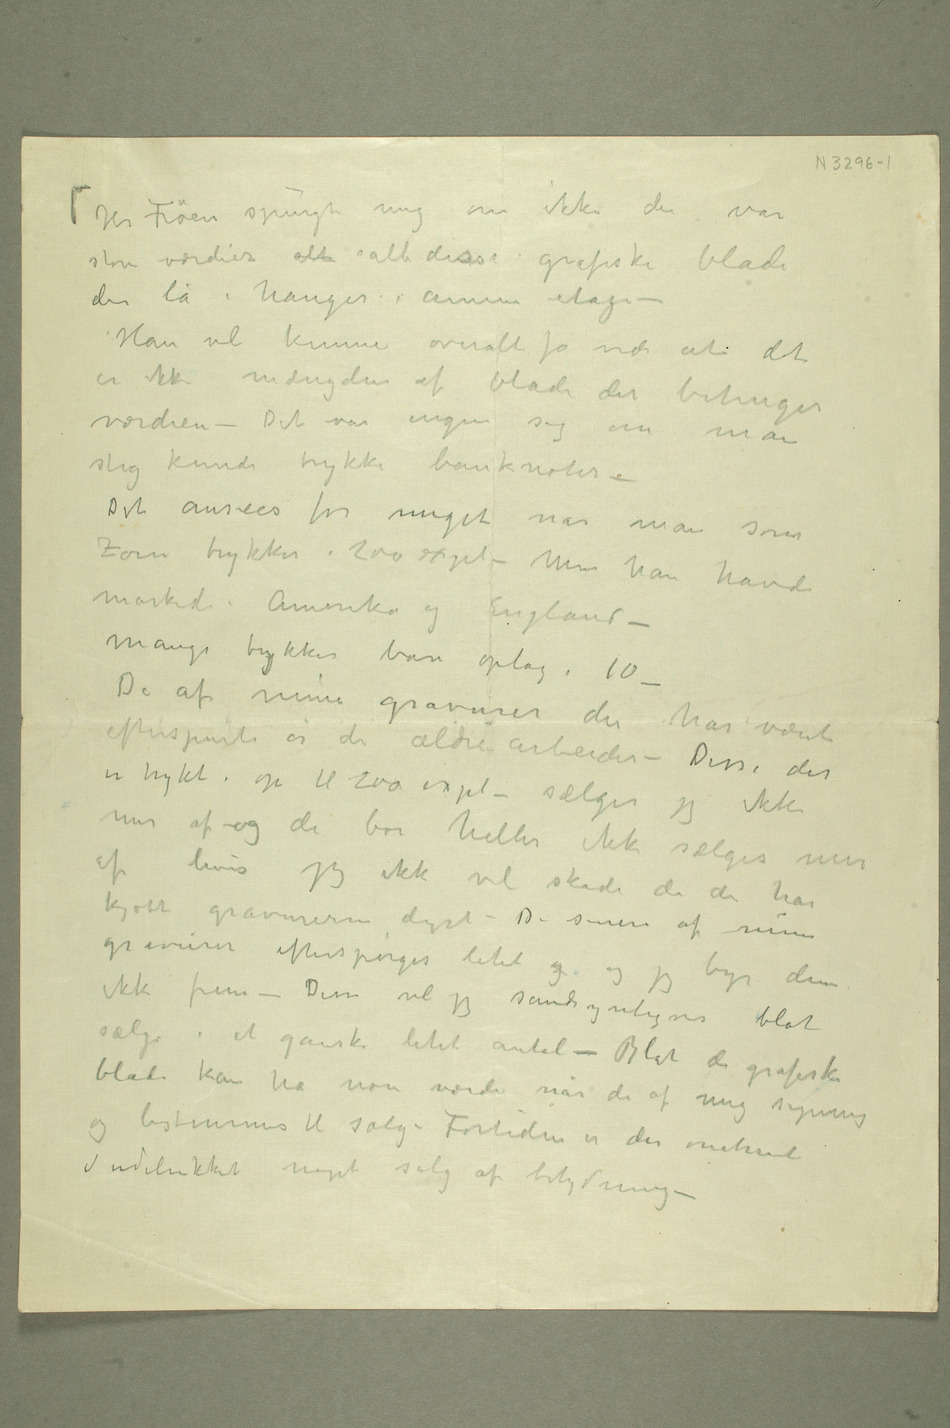 N 3296-1
Hr Fröen spurgte mig om ikke der var
store værdier alt i alle disse grafiske blade
der lå i hauger i annen etage –
Han vil kunne overalt få vide at det
er ikke mængden af blade der betinger
værdien – Det var ingen sag om man
slig kunde trykke banknoter –
Det ansees for meget når man som
Zorn trykker i 200 expl – Men han havde
marked i Amerika og England –
Mange trykker bare oplag i 10 –
De af mine gravurer der har været
efterspurte er de ældre arbeider – Disse der
er trykt i op til 200 expl – sælger jeg ikke
mer af – og de bør heller ikke sælges mer
af hvis jeg ikke vil skade de der har
kjøbt gravurerne dyrt – De senere af mine
gravurer efterspørges litet og og jeg byr dem
ikke frem – Disse vil jeg sandsynligvis blot
sælge i et ganske litet antal – Blot de grafiske
blade kan ha noen værdi når de af mig
og bestemmes til salg – Fortiden er der
udelukket noget salg af betydning –